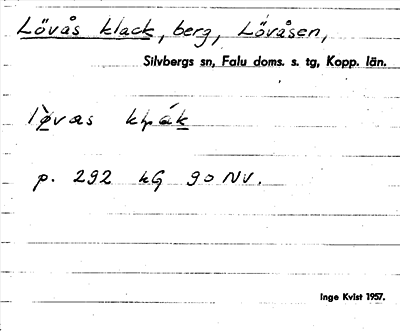 Lövås klack, berg, Lövåsen,
Silvbergs sn, Falu doms. s. tg, Kopp. län.
løvas
p. 292 kG 90 NV.
Inge Kvist 1957.